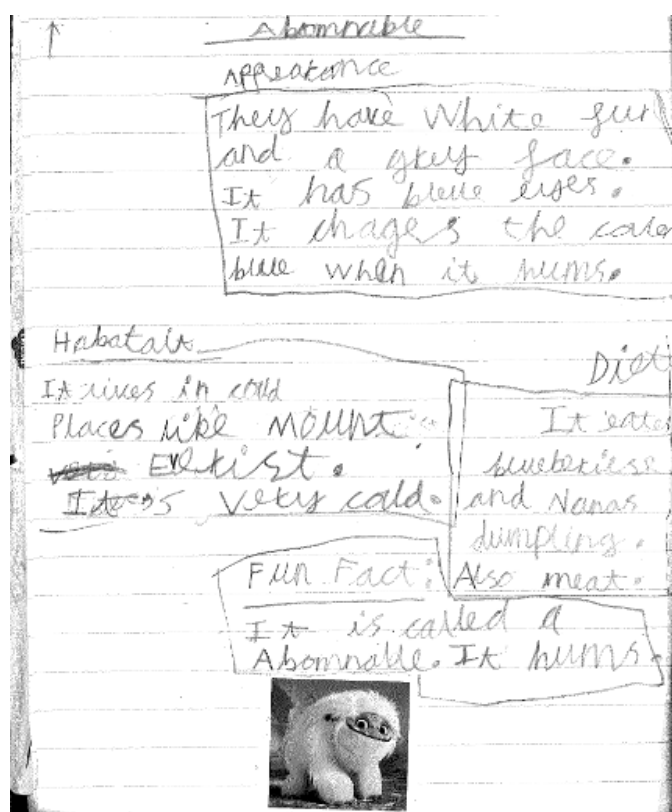 Abomnable
Appearance
They have white fur
and a grey face.
It has blue eyes.
It chages the coler
blue when it hums.
Habatait
It lives in cold
Places like MOUNT
Evrist.
It is very cold.
Diet
It eates
blueberiese
and Nanas
dumpling.
Also meat.
Fun Fact:
It is called a
Abomnable. It hums.